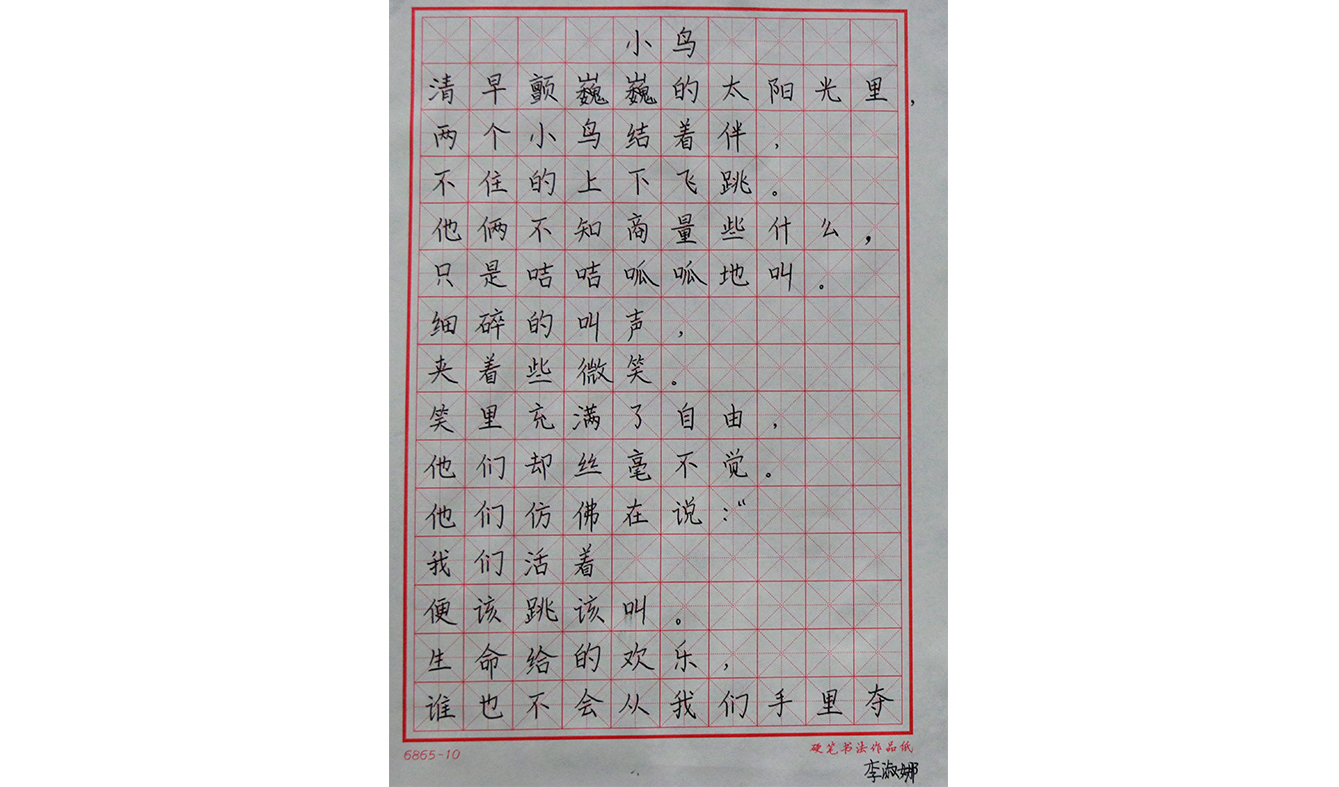 小鸟
清早颤巍巍的太阳光里，
两个小鸟结着伴，
不住的上下飞跳。
他俩不知商量些什么，
只是咭咭呱呱地叫。
细碎的叫声，
夹着些微笑。
笑里充满了自由，
他们却丝毫不觉。
他们仿佛在说：“
我们活着
便该跳该叫。
生命给的欢乐，
谁也不会从我们手里夺
6865-10
硬笔书法作品纸
李淑娜